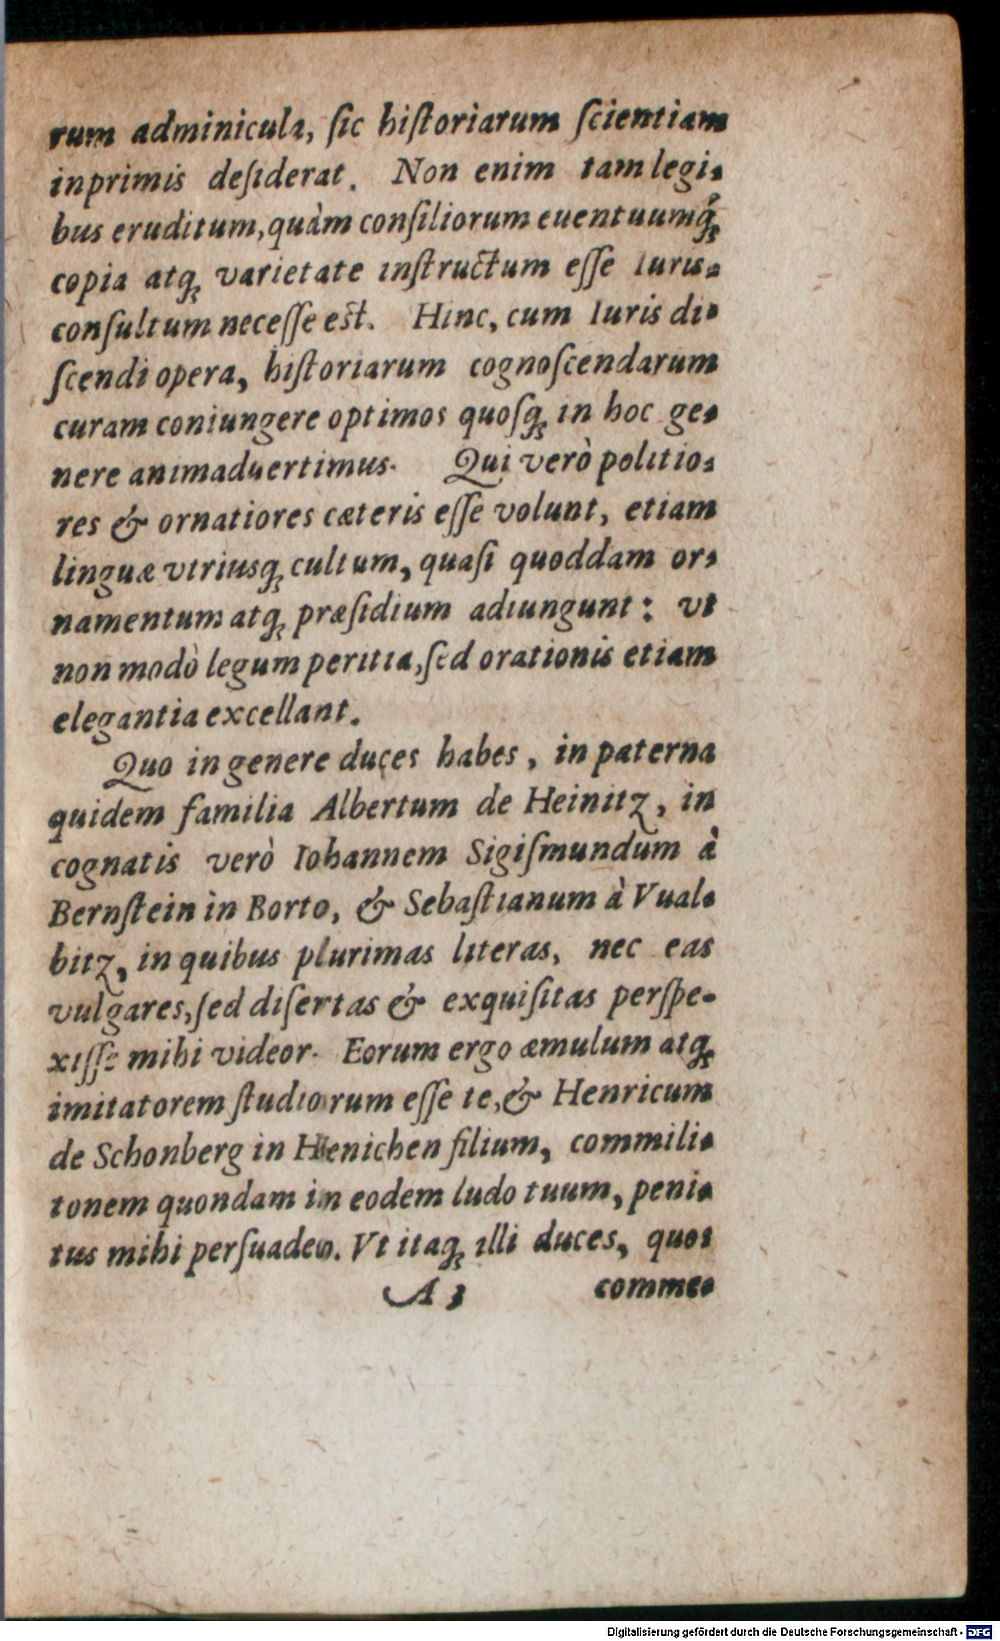 rum adminicula, ſic hiſtoriarum ſcientiam
inprimis deſiderat. Non enim tam legi-
bus eruditum, quàm conſiliorum euentuumq́;
copia atq; varietate inſtructum eſſe Iuris-
conſultum neceſſe est. Hinc, cum Iuris di-
ſcendi opera, hiſtoriarum cognoſcendarum
curam coniungere optimos quoſq; in hoc ge-
nere animaduertimus. Qui verò politio-
res & ornatiores cæteris eſſe volunt, etiam
linguæ vtriusq; cultum, quaſi quoddam or-
namentum atq; præſidium adiungunt: vt
non modò legum peritia, ſed orationis etiam
elegantia excellant.
Quo in genere duces habes, in paterna
quidem familia Albertum de Heinitz, in
cognatis verò Iohannem Sigiſmundum à
Bernſtein in Borto, & Sebaſtianum à Vual-
bitz, in quibus plurimas literas, nec eas
vulgares, ſed diſertas & exquiſitas perſpe-
xiſſe mihi videor. Eorum ergo æmulum atq;
imitatorem ſtudiorum eſſe te, & Henricum
de Schonberg in Hienichen filium, commili-
tonem quondam in eodem ludo tuum, peni-
tus mihi perſuadeo. Vt itaq; illi duces, quos
A 3 comme-
Digitalisierung gefördert durch die Deutsche Forschungsgemeinschaft - DFG